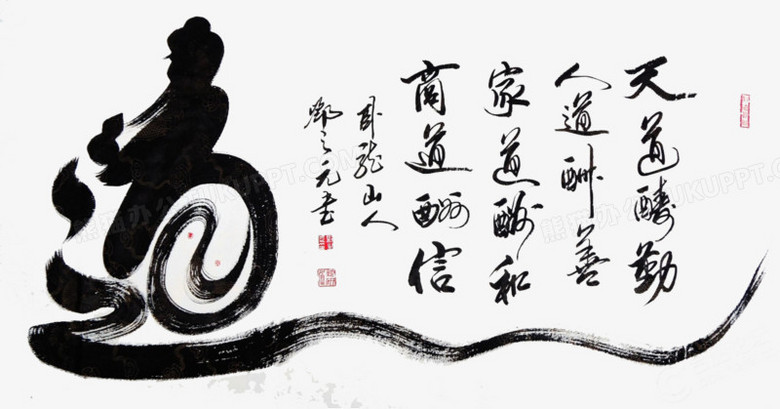 天道醻勤
人道酬善
家道酬和
商道酬信
卧龍山人
之元书
道
熊猫办公 TUKUPPT.COM